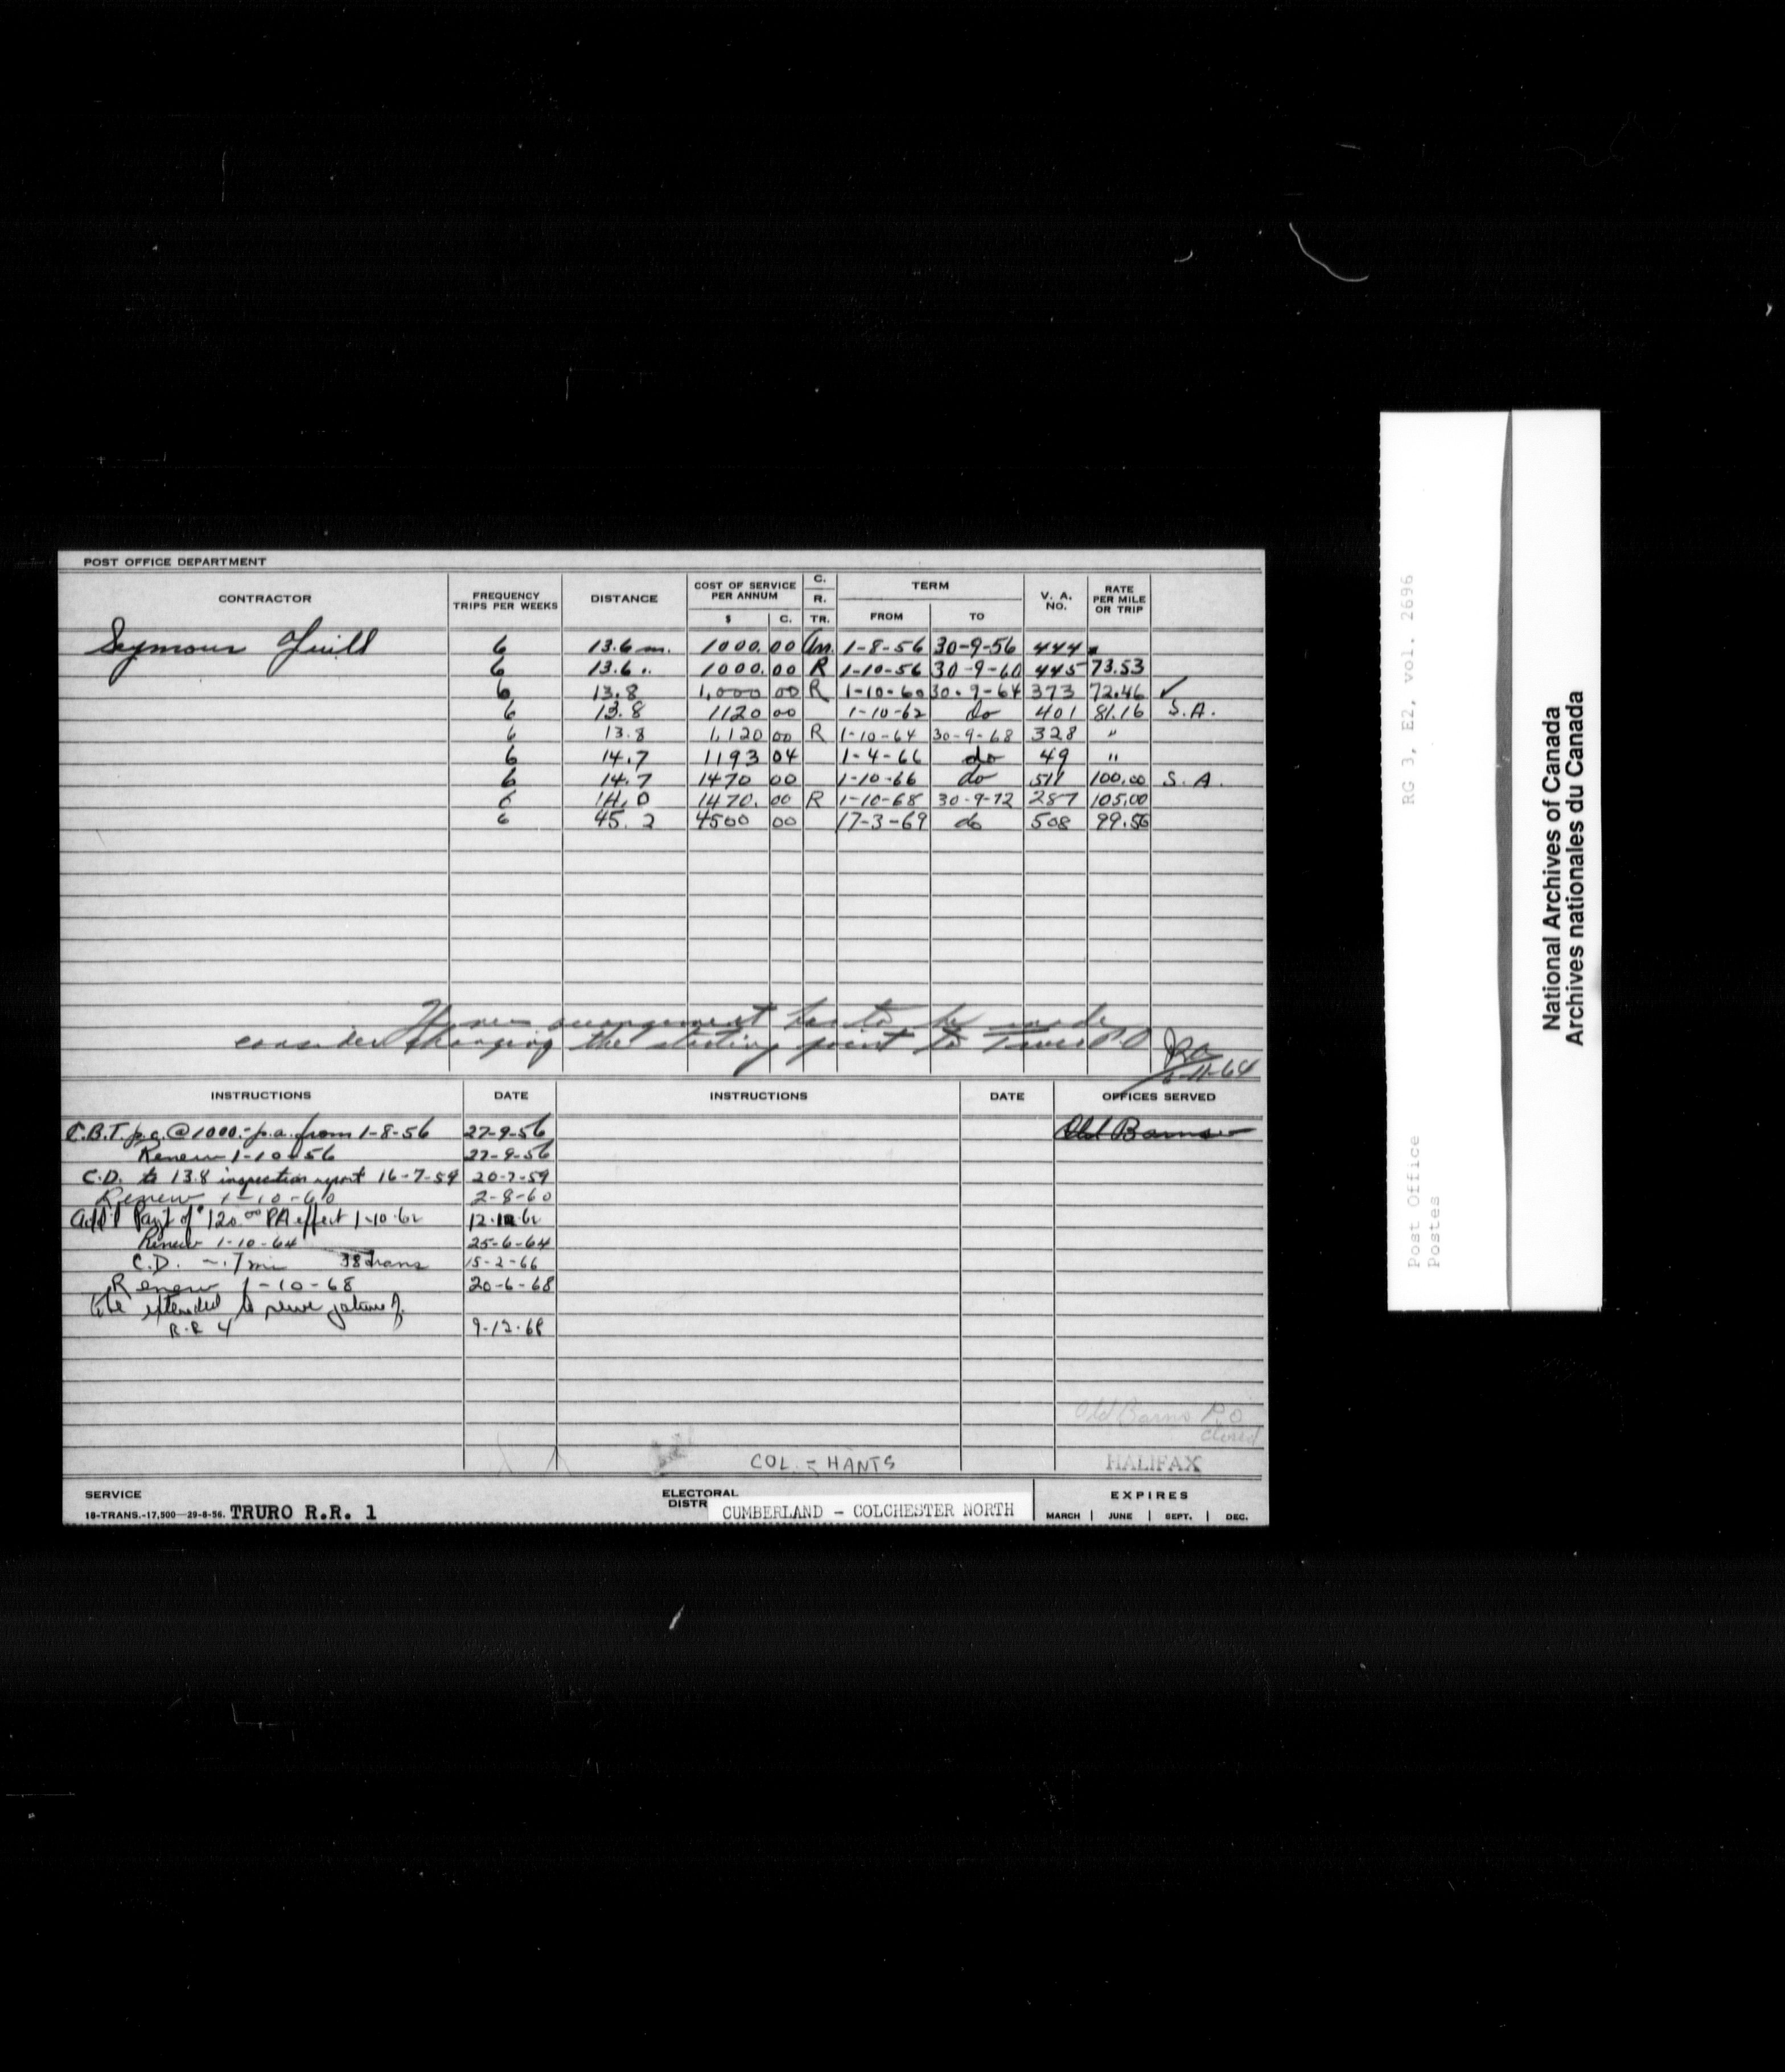 POST OFFICE DEPARTMENT
CONTRACTOR FREQUENCY TRIPS PER WEEKS DISTANCE COST OF SERVICE PER ANNUM $ C. C. R. TR. TERM FROM TO V. A. NO. RATE PER MILE OR TRIP
Seymour Yuill 6 13.6 m. 1000.00 1-8-56 30-9-56 444
6 13.6 " 1000.00 R 1-10-56 30-9-60 445 73.53
6 13.8 1,000 00 R 1-10-60 30-9-64 373 72.46 ✓
6 13.8 1120 00 1-10-62 do 401 81.16 S.A.
6 13.8 1,120 00 R 1-10-64 30-9-68 328 "
6 14.7 1193 04 1-4-66 do 49 "
6 14.7 1470 00 1-10-66 do 511 100.00 S.A.
6 14.0 1470.00 R 1-10-68 30-9-72 287 105.00
6 45.2 4500 00 17-3-69 do 508 99.56
If new arrangement has to be made
consider changing the starting point to Truro P.O
11-64
INSTRUCTIONS DATE INSTRUCTIONS DATE OFFICES SERVED
C.B.T. p.c. @ 1000.- p.a. from 1-8-56 27-9-56 Old Barns
Renew 1-10-56 27-9-56
C.D. to 13.8 inspection report 16-7-59 20-7-59
Renew 1-10-60 2-8-60
Add'l Pay't of $120.00 PA effect 1-10-62
Renew 1-10-64 25-6-64
C.D. - .7 mi 38 trans 15-2-66
Renew 1-10-68 20-6-68
To be extended to serve patrons of
R.R 4 9-12-68
Old Barns P.O
closed
COL. - HANTS HALIFAX
SERVICE
18-TRANS.-17,500—29-8-56. TRURO R.R. 1
ELECTORAL
DISTR CUMBERLAND - COLCHESTER NORTH
EXPIRES
MARCH | JUNE | SEPT. | DEC.
RG 3, E2, vol. 2696
Post Office
Postes
National Archives of Canada
Archives nationales du Canada